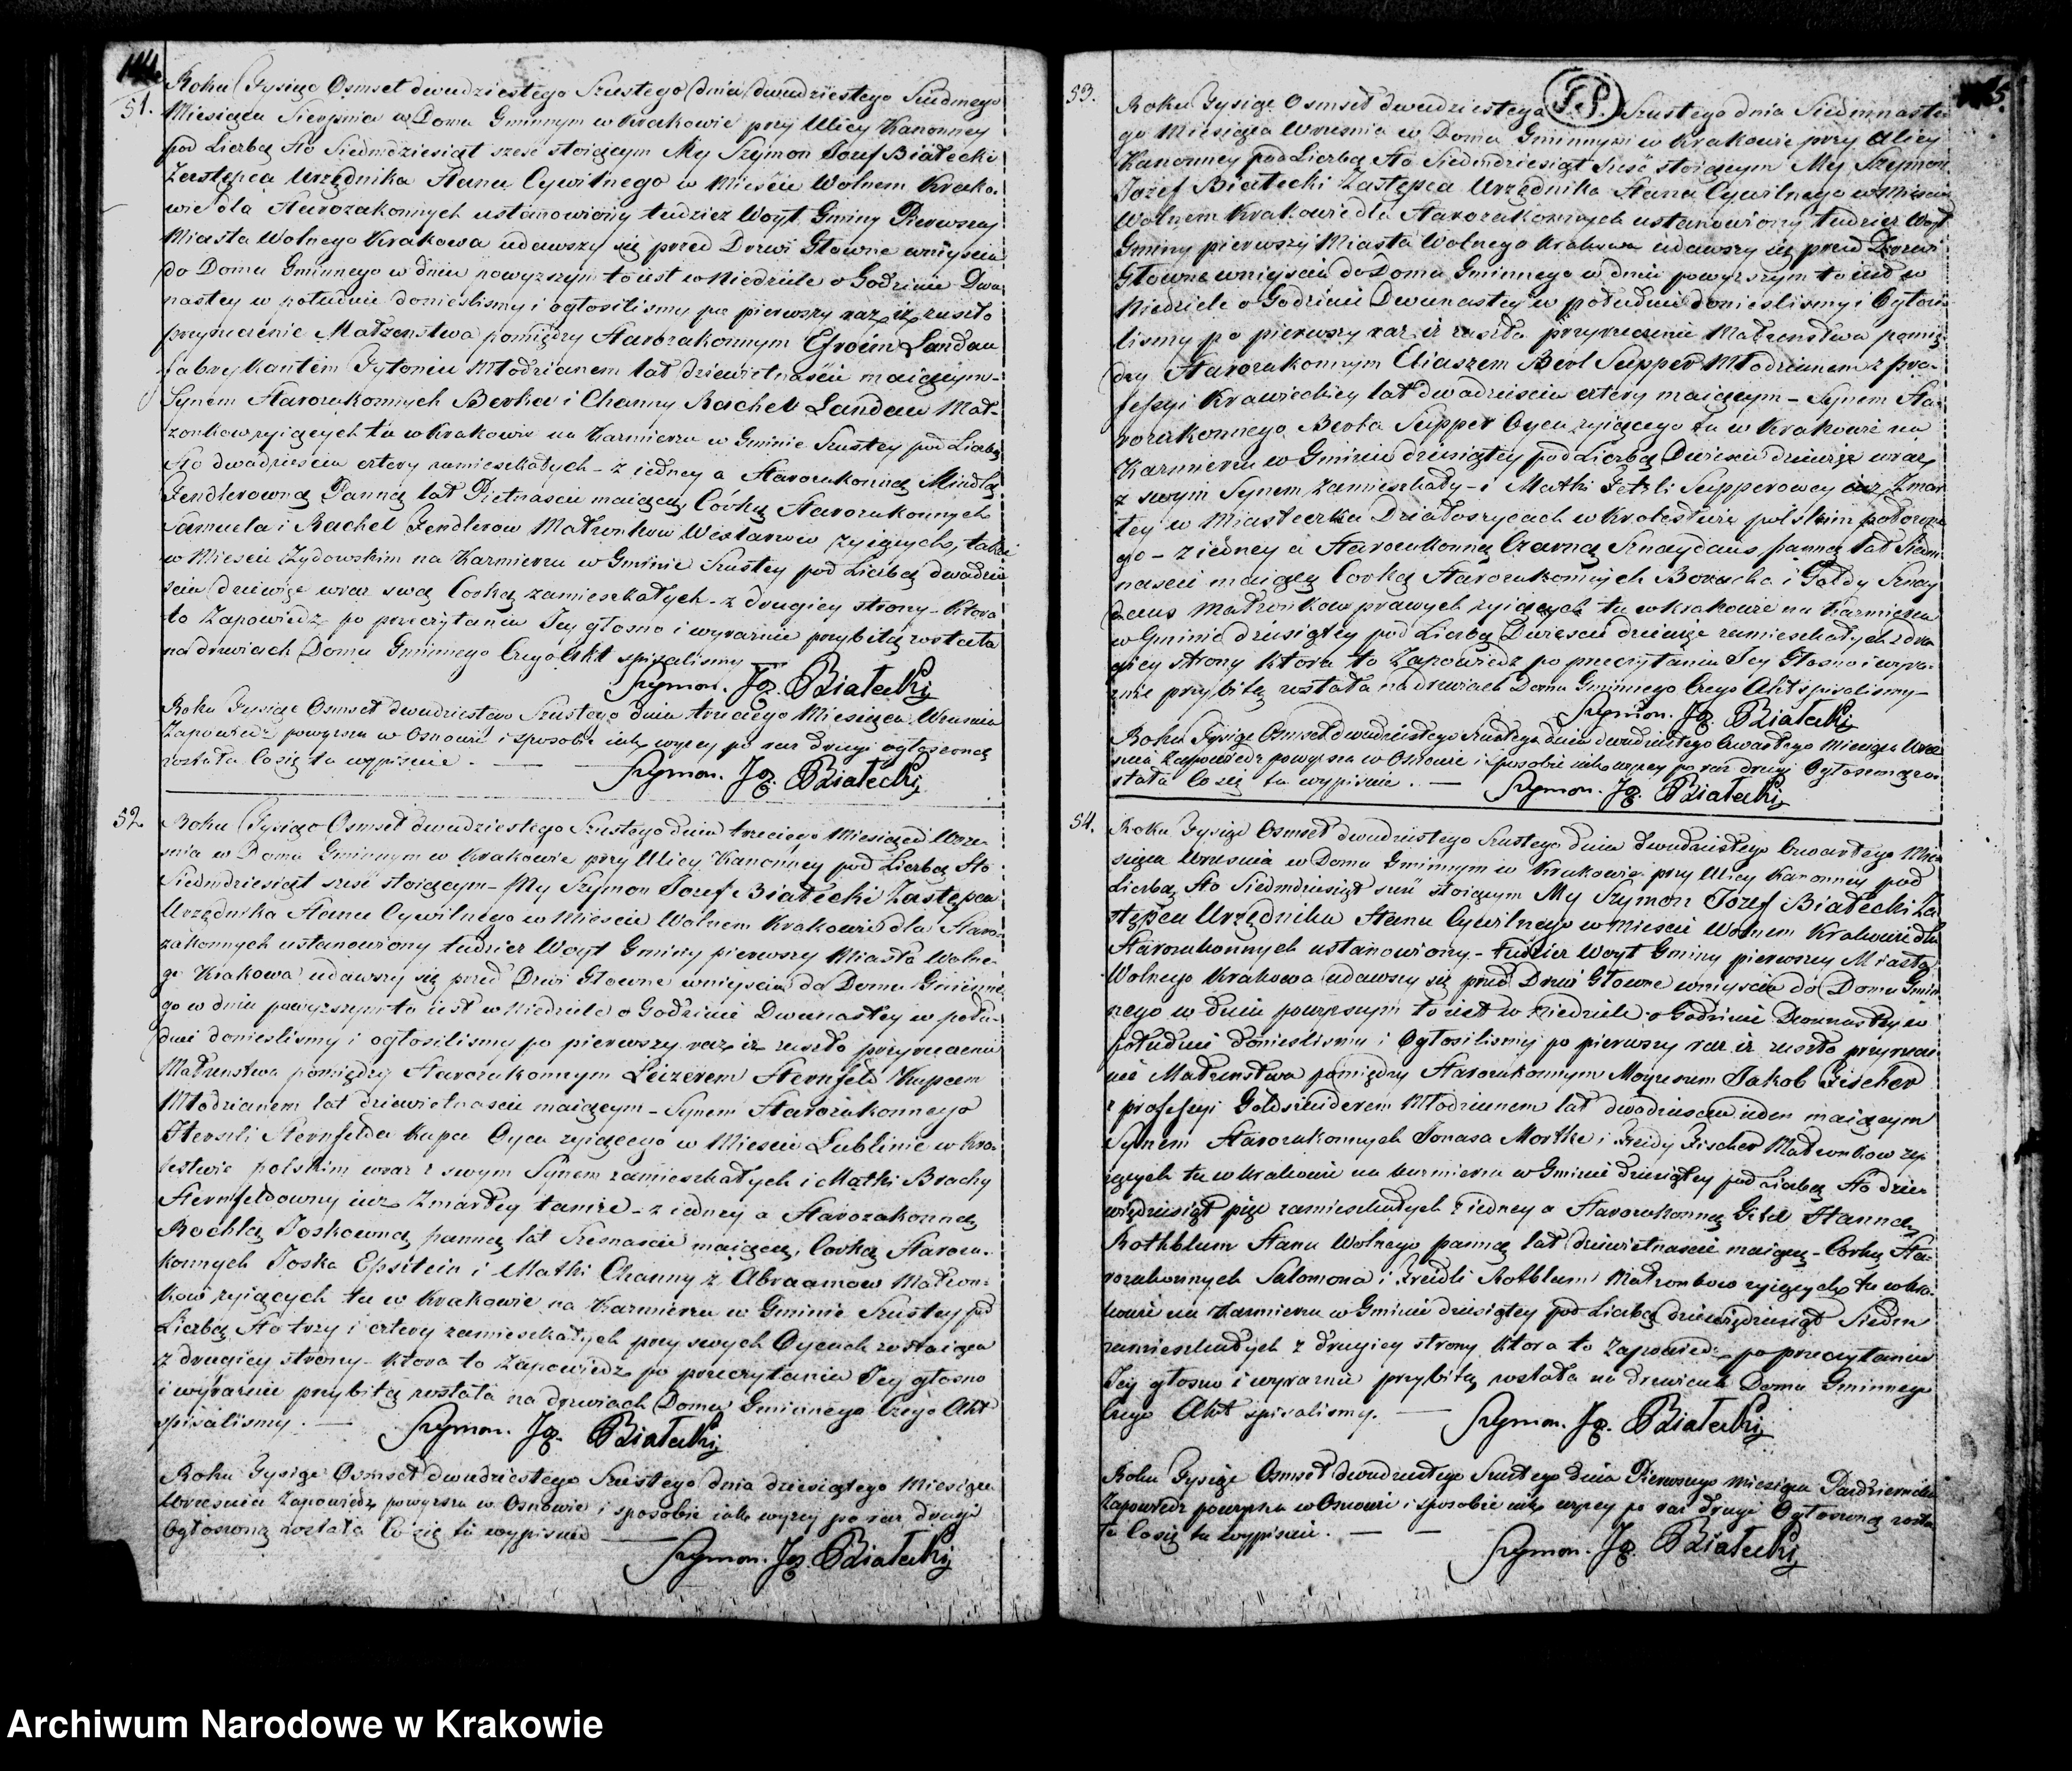 144
51.
Roku Tysiąc Osmset dwudziestego Szustego dnia dwudziestego Siudmego
Miesiąca Sierpnia w Domu Gminnym w Krakowie przy Ulicy Kanonney
pod Liczbą Sto Siedmdziesiąt szesć stoiącym My Szymon Jozef Białecki
Zastępca Urzędnika Stanu Cywilnego w Miescie Wolnem Krako-
wie dla Starozakonnych ustanowiony tudziez Woyt Gminy Pierwszey
Miasta Wolnego Krakowa udawszy się przed Drzwi Głowne wniyscia
do Domu Gminnego w dniu powyzszym to iest w Niedziele o Godzinie Dwu-
nastey w południe doniesliśmy i ogłosilismy po pierwszy raz, iz zaszło
przyrzeczenie Małzenstwa pomiędzy Starozakonnym Efroim Landau
Fabrykantem Tytoniu Młodzianem lat dziewietnascie maiącym-
Synem Starozakonnych Berka i Channy Rachel Landau Mał-
zonkow zyiących tu w Krakowie na Kazmierzu w Gminie Szustey pod Liczbą
Sto dwadziescia cztery zamieszkałych - z iedney a Starozakonną Mindlą
Fendlerowną Panną lat Pietnascie maiącą Córką Starozakonnych
Samuela i Rachel Fendlerow Małzonkow Westarow zyiących, także
w Miescie Zydowskim na Kazmierzu w Gminie Szustey pod Liczbą dwadzie
scia dziewięc wraz swą Corką zamieszkałych - z drugiey strony - Ktora
to Zapowiedz po przeczytaniu Jey głosno i wyraznie przybitą została
na drzwiach Domu Gminnego Czego Akt spisalismy
Szymon. Joz. Białecki
Roku Tysiąc Osmset dwudziestego Szustego dnia trzeciego Miesiąca Wrzesnia
Zapowiedz powyzsza w Osnowie i sposobie iak wyzey po raz drugi ogłoszoną
została Co się tu wypisuie. —
Szymon. Joz. Białecki
52
Roku Tysiąc Osmset dwudziestego Szustego dnia trzeciego Miesiąca Wrze-
snia w Domu Gminnym w Krakowie przy Ulicy Kanonney pod Liczbą Sto
Siedmdziesiąt szesć stoiącym - My Szymon Jozef Białecki Zastępca
Urzędnika Stanu Cywilnego w Miescie Wolnem Krakowie dla Staro-
zakonnych ustanowiony tudziez Woyt Gminy pierwszey Miasta Wolne-
go Krakowa udawszy się przed Drzwi Głowne wniyscia do Domu Gminne-
go w dniu powyzszym to iest w Niedziele o Godzinie Dwunastey w połu-
dnie doniesliśmy i ogłosilismy po pierwszy raz, iz zaszło przyrzeczenie
Małzenstwa pomiędzy Starozakonnym Leizerem Sternfeld Kupcem
Młodzianem lat dziewietnascie maiącym - Synem Starozakonnego
Herszli Sternfelda Kupca Oyca zyiącego w Miescie Lublinie w Kro-
lestwie polskim wraz z swym Synem zamieszkałych i Matki Brachy
Sternfeldowny iuz Zmarłey tamze - z iedney a Starozakonną
Rochlą Joskowną panną lat Szesnascie maiącą, Corką Staroza-
konnych Joska Epsztein i Matki Channy z Abraamow Małzon-
kow zyiących tu w Krakowie na Kazmierzu w Gminie Szustey pod
Liczbą Sto trzy i cztery zamieszkałych przy swych Oycach zostaiąca
z drugiey strony - Ktora to Zapowiedz po przeczytaniu Jey głosno
i wyraznie przybitą została na drzwiach Domu Gminnego Czego Akt
spisalismy. —
Szymon. Joz. Białecki
Roku Tysiąc Osmset dwudziestego Szustego dnia dziesiątego Miesiąca
Wrzesnia Zapowiedz powyzsza w Osnowie i sposobie iak wyzey po raz drugi
Ogłoszoną została Co się tu wypisuie
Szymon. Joz. Białecki
53.
Roku Tysiąc Osmset dwudziestego Szustego dnia Siedmnaste-
go Miesiąca Wrzesnia w Domu Gminnym w Krakowie przy Ulicy
Kanonney pod Liczbą Sto Siedmdziesiąt Szesć stoiącym My Szymon
Józef Białecki Zastępca Urzędnika Stanu Cywilnego w Miescie
Wolnem Krakowie dla Starozakonnych ustanowiony tudziez Woyt
Gminy pierwszey Miasta Wolnego Krakowa udawszy się przed Drzwi
Głowne wniyscia do Domu Gminnego w dniu powyzszym to iest w
Niedziele o Godzinie Dwunastey w południe donieslismy i Ogłosi-
lismy po pierwszy raz iz zaszło przyrzeczenie Małzenstwa pomię-
dzy Starozakonnym Eliaszem Berl Supper Młodzianem z pro-
fessyi Krawieckiey lat dwadziescia cztery maiącym - Synem Sta-
rozakonnego Berla Supper Oyca zyiącego tu w Krakowie na
Kazmierzu w Gminie dziesiątey pod Liczbą Dwiescie dziewięc wraz
z swym Synem zamieszkały - i Matki Fetzli Supperowey iuz Zmar
łey w Miasteczku Działoszycach w Krolestwie polskim
go - z iedney a Starozakonną Czarną Sznaydaus, panną lat Siedm-
nascie maiącą Corką Starozakonnych Boracha i Gołdy Sznay
daus Małzonkow prawych zyiących tu w Krakowie na Kazmierzu
w Gminie dziesiątey pod Liczbą Dwiescie dziewięc zamieszkałych z dru
giey strony Ktora to Zapowiedz po przeczytaniu Jey Głosno i wyra-
znie przybitą została na drzwiach Domu Gminnego Czego Akt spisalismy -
Szymon. Joz. Białecki
Roku Tysiąc Osmset dwudziestego Szustego dnia dwudziestego Czwartego Miesiąca Wrze
snia Zapowiedz powyzsza w Osnowie i sposobie iak wyzey po raz drugi Ogłoszoną zo-
stała Co się tu wypisuie. —
Szymon. Joz. Białecki
54.
Roku Tysiąc Osmset dwudziestego Szustego dnia dwudziestego Czwartego Mie
siąca Wrzesnia w Domu Gminnym w Krakowie przy Ulicy Kanonney pod
Liczbą Sto Siedmdziesiąt szesć stoiącym My Szymon Jozef Białecki Za
stępca Urzędnika Stanu Cywilnego w Miescie Wolnem Krakowie dla
Starozakonnych ustanowiony - Tudziez Woyt Gminy pierwszey Miasta
Wolnego Krakowa udawszy się przed Drzwi Głowne wniyscia do Domu Gmin
nego w dniu powyzszym to iest w Niedziele o Godzinie Dwunastey w
południe donieslismy i Ogłosilismy po pierwszy raz iz zaszło przyrzecze
nie Małzenstwa pomiędzy Starozakonnym Moyzeszem Jakob Fischer
z professyi Goldszmiderem Młodzianem lat dwadziescia ieden maiącym
Synem Starozakonnych Jonasa Mortke i Freidy Fischer Małzonkow zy-
iących tu w Krakowie na Kazmierzu w Gminie dziesiątey pod Liczbą Sto dzie-
więdziesiąt pięc zamieszkałych z iedney a Starozakonną Gitel Hanną
Rothblum Stanu Wolnego panną lat dziewietnascie maiącą - Corką Sta-
rozakonnych Salomona i Freidli Rothblum Małzonkow zyiących tu w Kra-
kowie na Kazmierzu w Gminie dziesiątey pod Liczbą dziewiędziesiąt Siedm
zamieszkałych z drugiey strony Ktora to Zapowiedz po przeczytaniu
Jey głosno i wyraznie przybitą została na drzwiach Domu Gminnego
Czego Akt spisalismy. —
Szymon. Joz. Białecki
Roku Tysiąc Osmset dwudziestego Szustego dnia Pierwszego miesiąca Pazdziernika
Zapowiedz powyzsza w Osnowie i sposobie iak wyzey po raz drugi Ogłoszoną zosta
ła Co się tu wypisuie. — —
Szymon. Joz. Białecki
Archiwum Narodowe w Krakowie